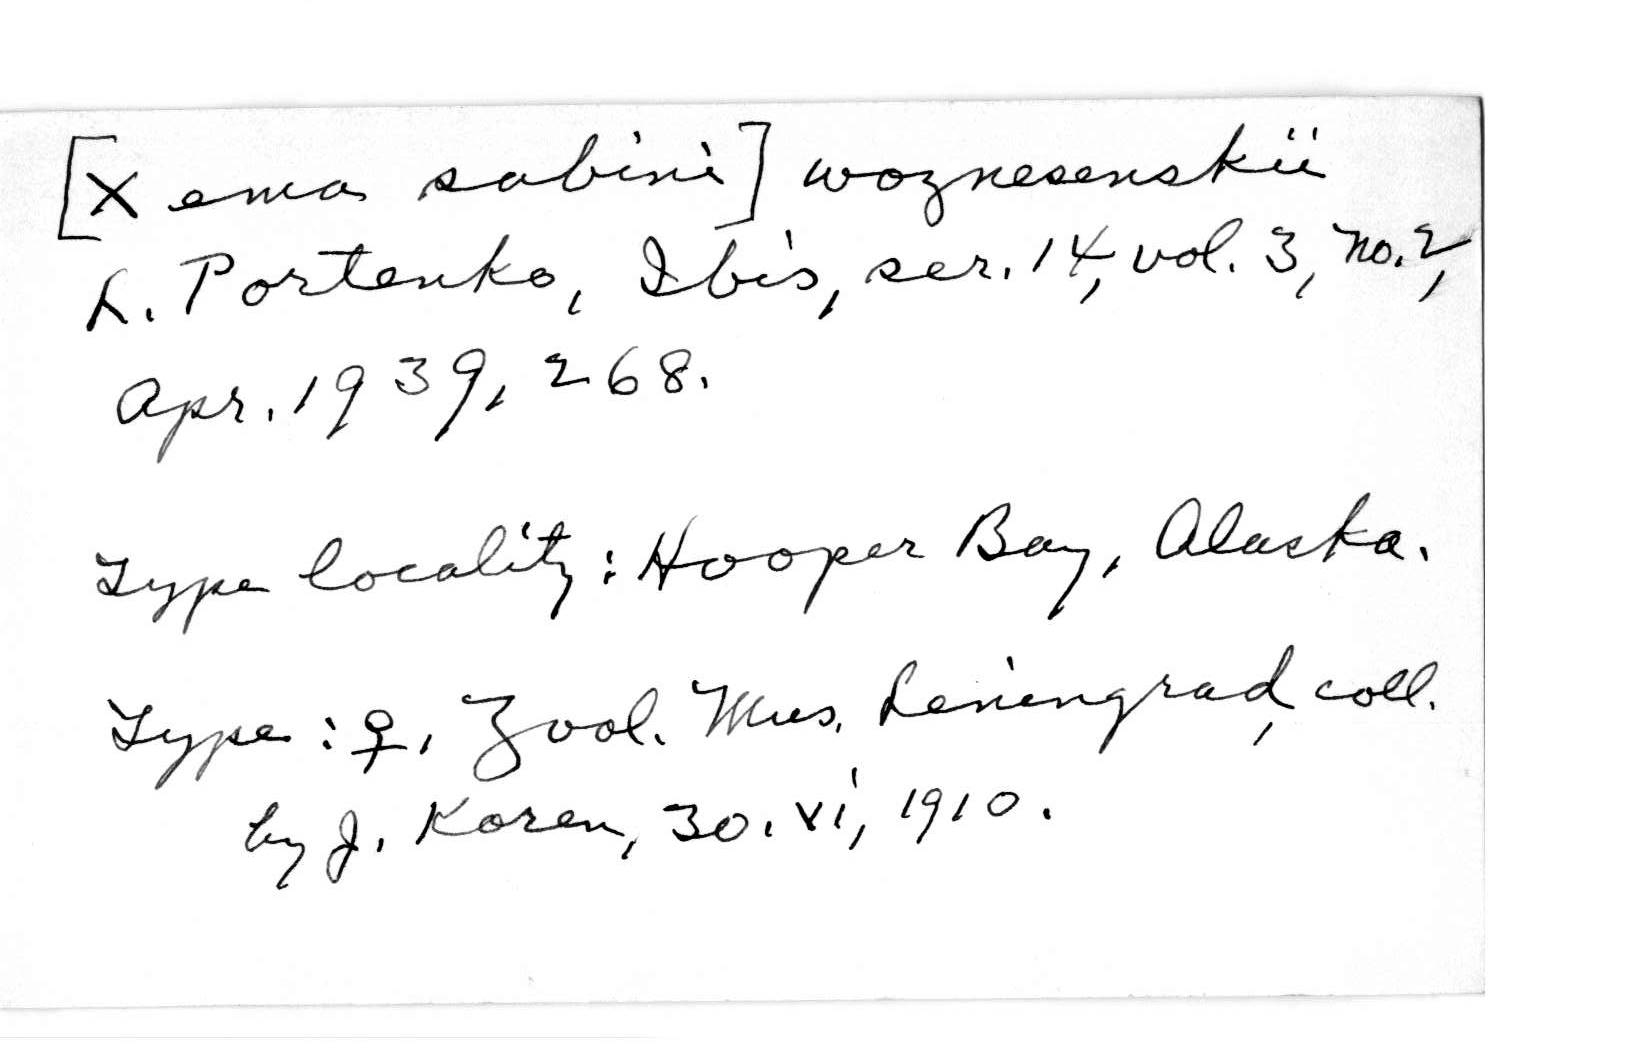 [Xema sabini] woznesenskii
L. Portenko, Ibis, ser. 14, vol. 3, no. 2,
Apr. 1939, 268.
Type locality: Hooper Bay, Alaska.
Type: ♀, Zool. Mus. Leningrad, coll.
by J. Koren, 30. vi, 1910.